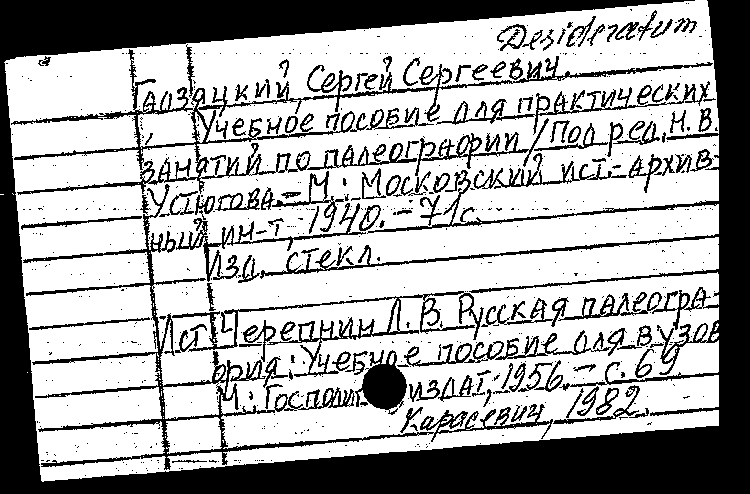 Desideratum
Гадзяцкий, Сергей Сергеевич.
Учебное пособие для практических
занятий по палеографии / Под ред. Н.В.
Устюгова. – М.: Московский ист.-архив-
ный ин-т, 1940. – 71 с.
Изд. стекл.
Ист.: Черепнин Л.В. Русская палеогра-
фия: Учебное пособие для вузов
М.: Госполитиздат, 1956. – с. 69.
Карасевич, 1982.